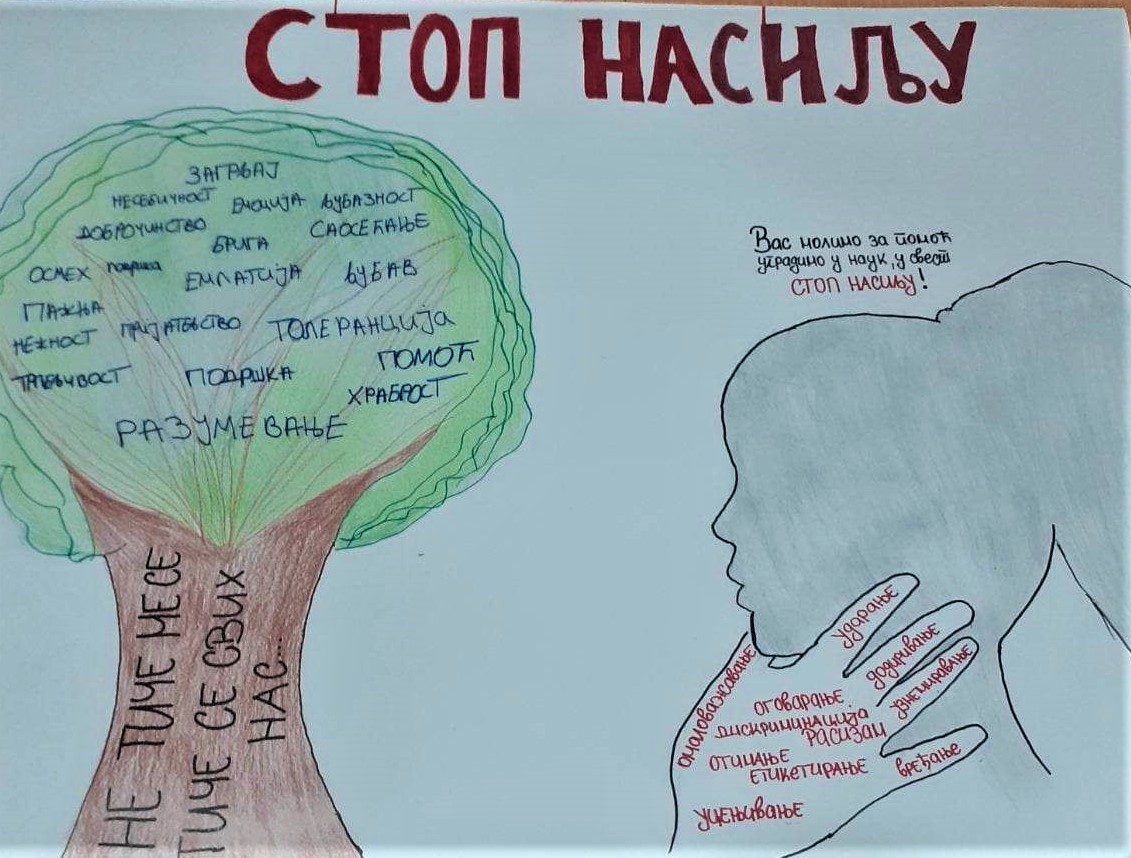 СТОП НАСИЉУ
ЗАГРЉАЈ
НЕСЕБИЧНОСТ ЕМОЦИЈА ЉУБАЗНОСТ
ДОБРОЧИНСТВО САОСЕЋАЊЕ
БРИГА
ОСМЕХ ПОДРШКА ЕМПАТИЈА ЉУБАВ
ПАЖЊА
НЕЖНОСТ ПРИЈАТЕЉСТВО ТОЛЕРАНЦИЈА
ПОМОЋ
ПОДРШКА
ХРАБРОСТ
РАЗУМЕВАЊЕ
НЕ ТИЧЕ МЕ СЕ
ТИЧЕ СЕ СВИХ
НАС...
Вас молимо за помоћ
уградимо у наук, у свест
СТОП НАСИЉУ!
ударање
додиривање
узнемиравање
вређање
омаловажавање
оговарање
дискриминација
расизам
отимање
етикетирање
уцењивање